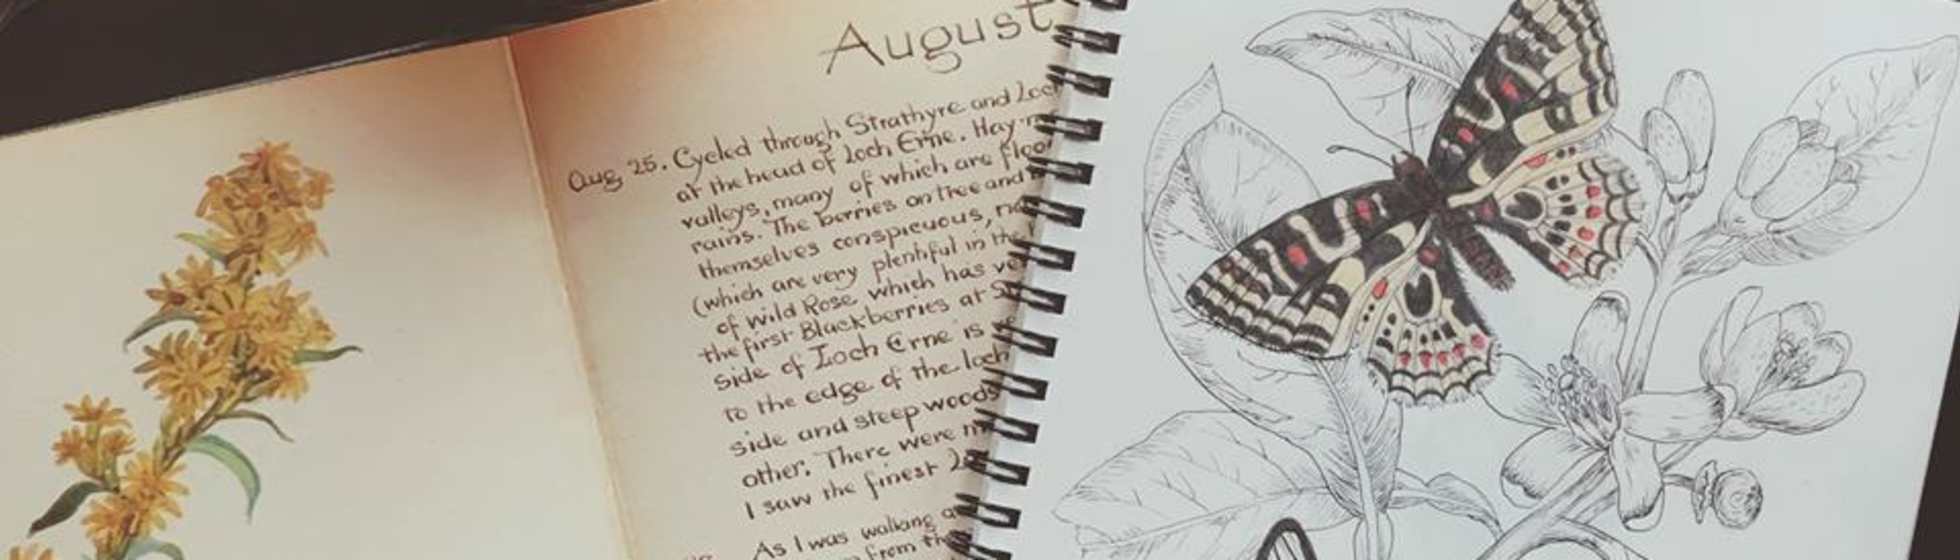 August
Aug 25. Cycled through Strathyre and
at the head of Loch Erne.
valleys, many of which are
rains. The berries on tree and
themselves conspicuous,
(which are very plentiful in the
of wild Rose which has
the first Blackberries at
side of Loch Erne is
to the edge of the loch
side and steep woods
other. There were
I saw the finest
As I was walking
from the